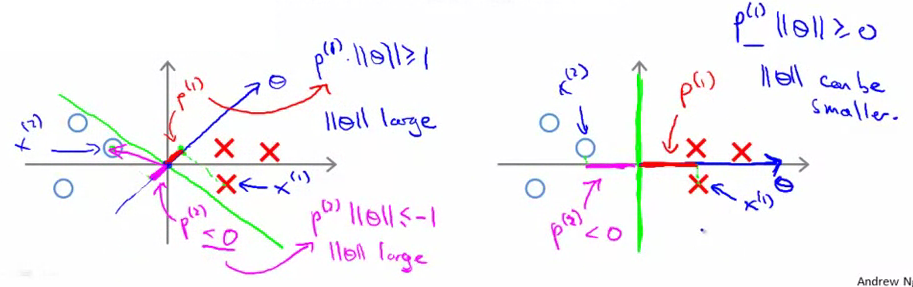 p⁽¹⁾
θ
p⁽¹⁾·||θ||≥1
||θ|| large
x⁽²⁾
x⁽¹⁾
p⁽²⁾
<0
p⁽²⁾ ||θ||≤-1
||θ|| large
p⁽¹⁾ ||θ||≥0
||θ|| can be
smaller.
x⁽²⁾
p⁽¹⁾
θ
x⁽¹⁾
p⁽²⁾<0
Andrew Ng